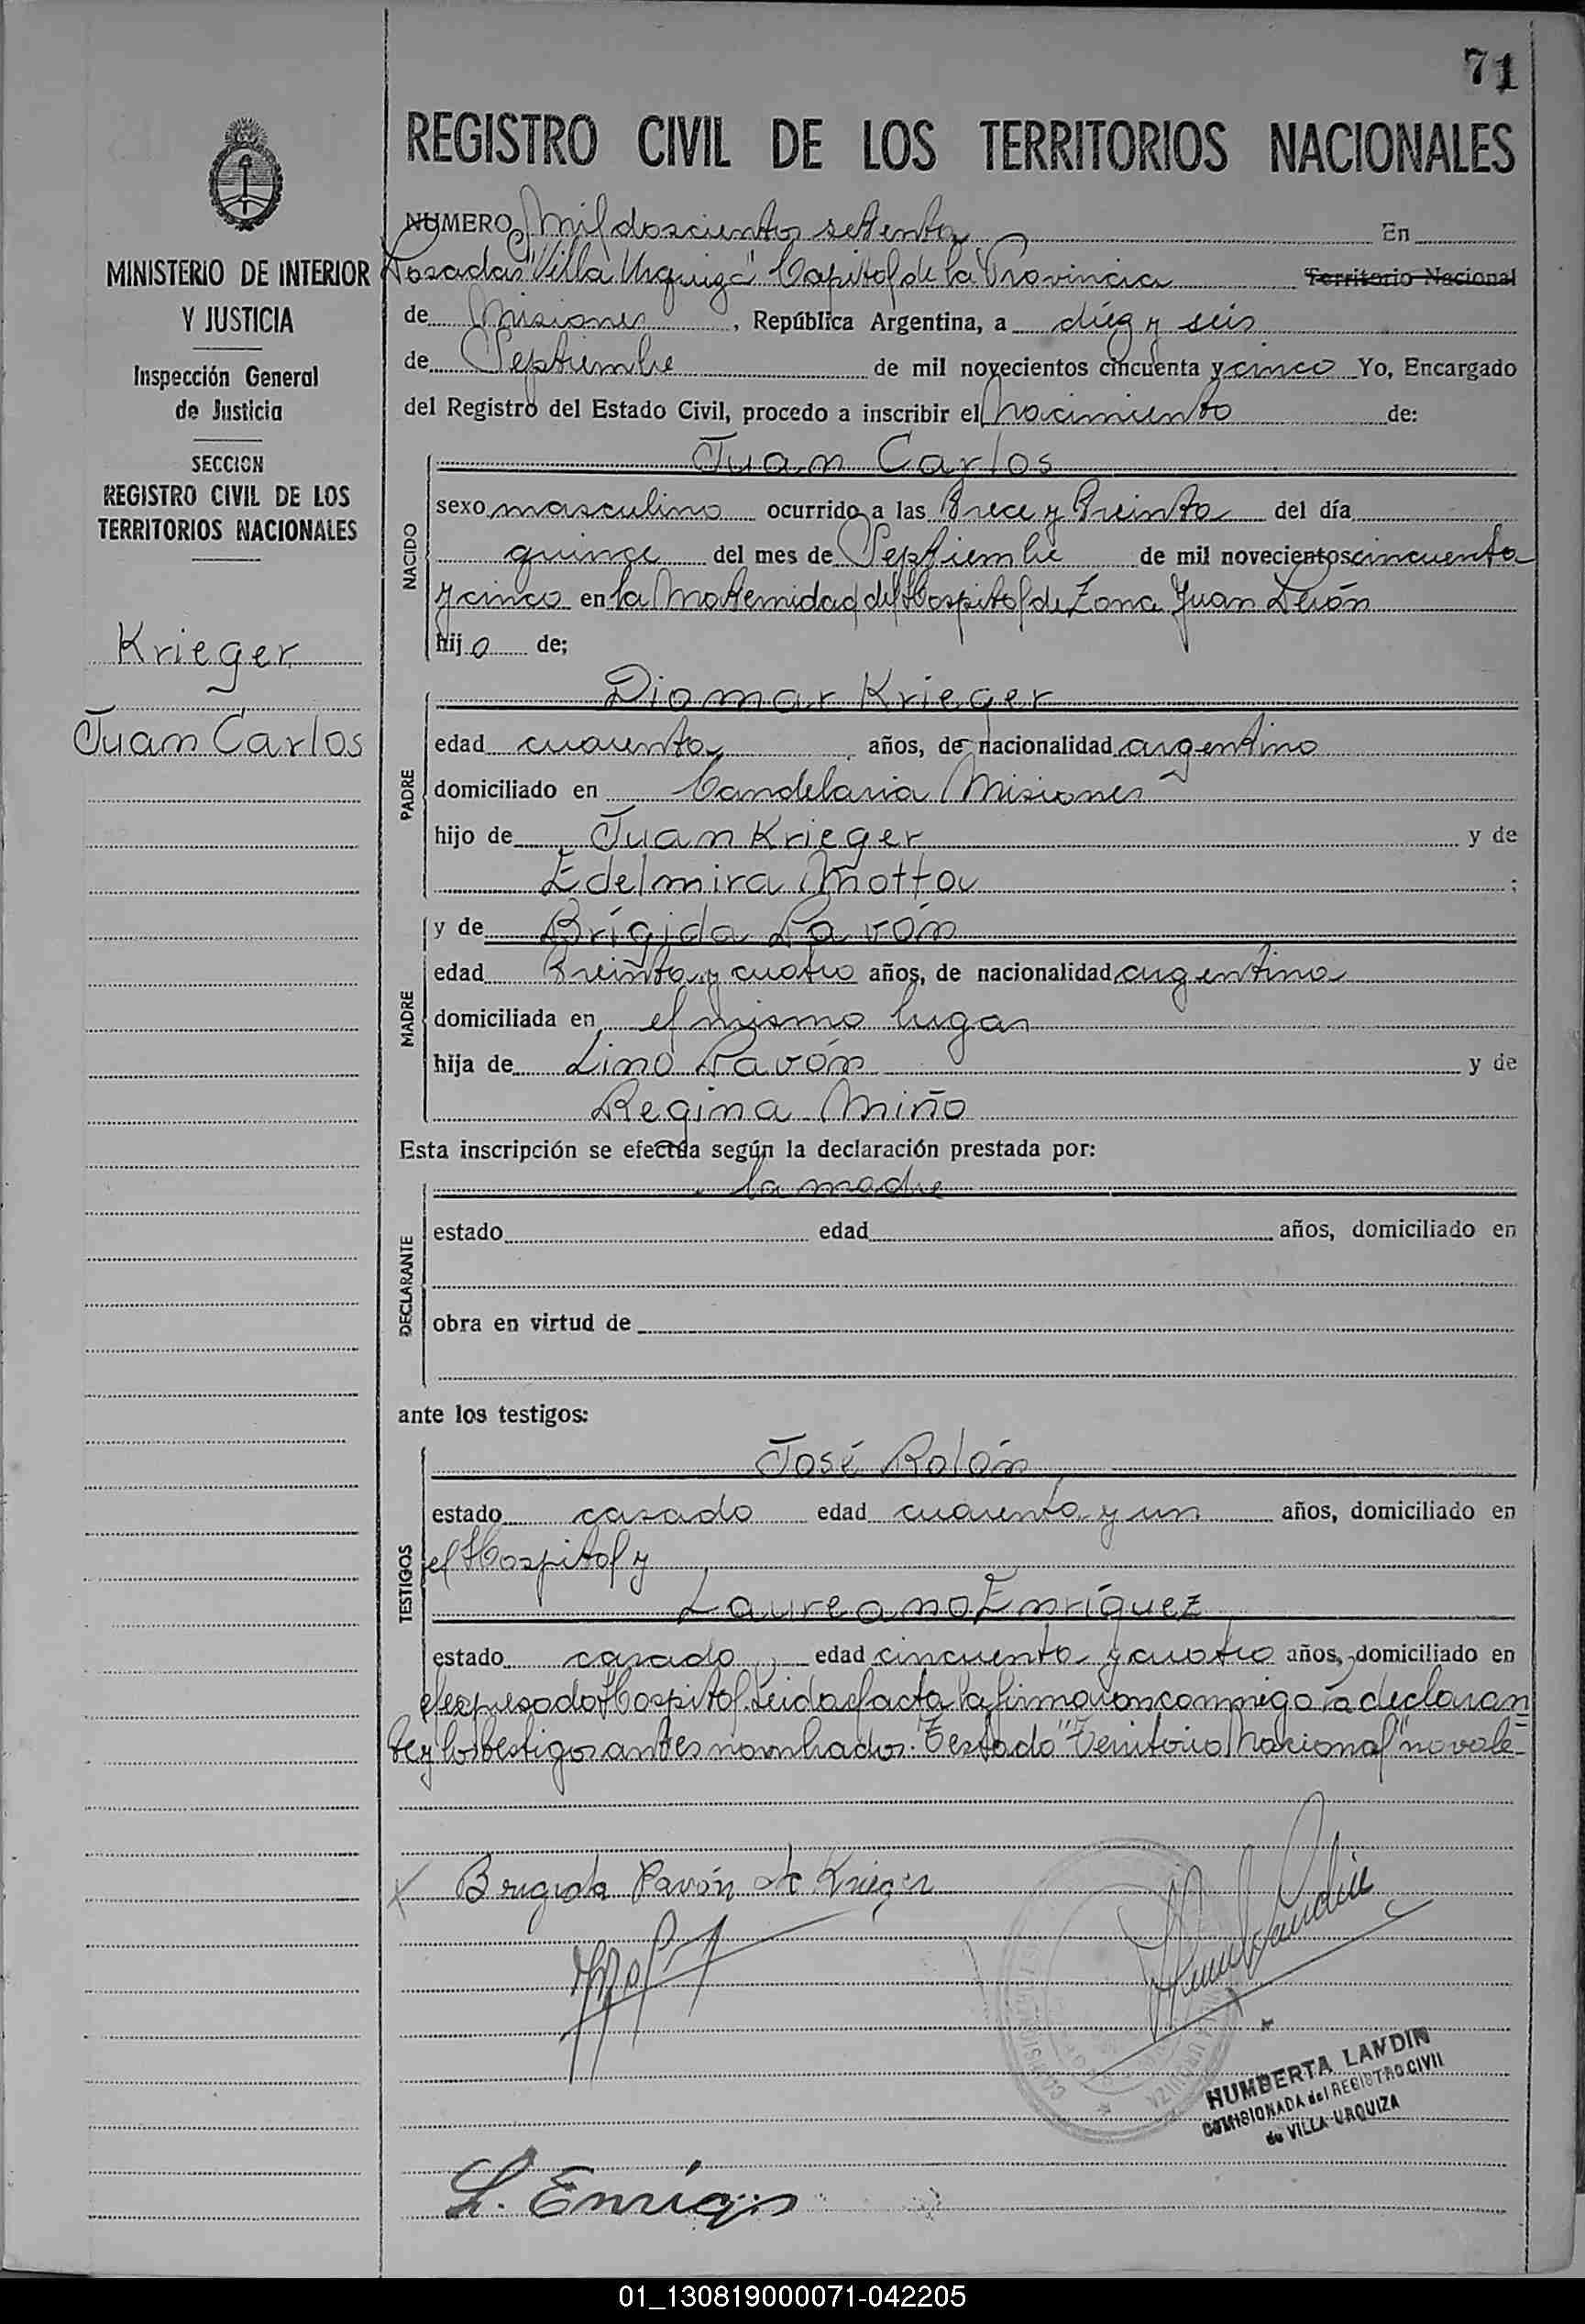 71
REGISTRO CIVIL DE LOS TERRITORIOS NACIONALES
MINISTERIO DE INTERIOR
Y JUSTICIA
Inspección General
de Justicia
SECCION
REGISTRO CIVIL DE LOS
TERRITORIOS NACIONALES
Krieger
Juan Carlos
NUMERO Mil doscientos setenta En
Posadas "Villa Urquiza" Capital de la Provincia Territorio Nacional
de Misiones, República Argentina, a diéz y seis
de Septiembre de mil novecientos cincuenta y cinco Yo, Encargado
del Registro del Estado Civil, procedo a inscribir el Nacimiento de:
NACIDO
Juan Carlos
sexo masculino ocurrido a las trece y treinta del día
quince del mes de Septiembre de mil novecientos cincuenta
y cinco en la Maternidad del Hospital de Zona Juan Perón
hijo de;
PADRE
Diomar Krieger
edad cuarenta años, de nacionalidad argentino
domiciliado en Candelaria Misiones
hijo de Juan Krieger y de
Edelmira Motta ;
MADRE
y de Brígida Pavón
edad treinta y cuatro años, de nacionalidad argentina
domiciliada en el mismo lugar
hija de Lino Pavón y de
Regina Miño
Esta inscripción se efectúa según la declaración prestada por:
DECLARANTE
la madre
estado edad años, domiciliado en
obra en virtud de
ante los testigos:
TESTIGOS
José Rolón
estado casado edad cuarenta y un años, domiciliado en
el Hospital y
Laureano Enríquez
estado casado, edad cincuenta y cuatro años, domiciliado en
el expresado Hospital. Leida el acta la firmaron conmigo la declaran=
te y los testigos antes nombrados. Testado "Territorio Nacional" no vale-
Brigida Pavón de Krieger
HUMBERTA LANDIN
COMISIONADA del REGISTRO CIVIL
de VILLA URQUIZA
L. Enriqs
01_130819000071-042205